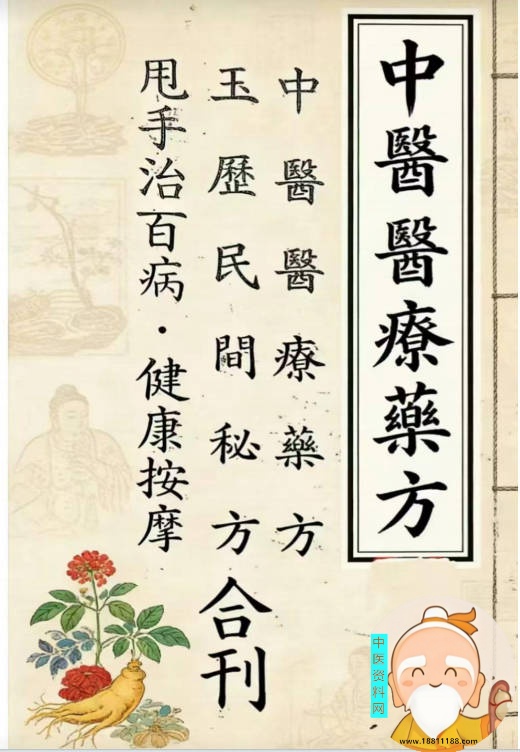 中醫醫療藥方
中醫醫療藥方
玉歷民間秘方合刊
甩手治百病·健康按摩
中医资料网
www.18811188.com